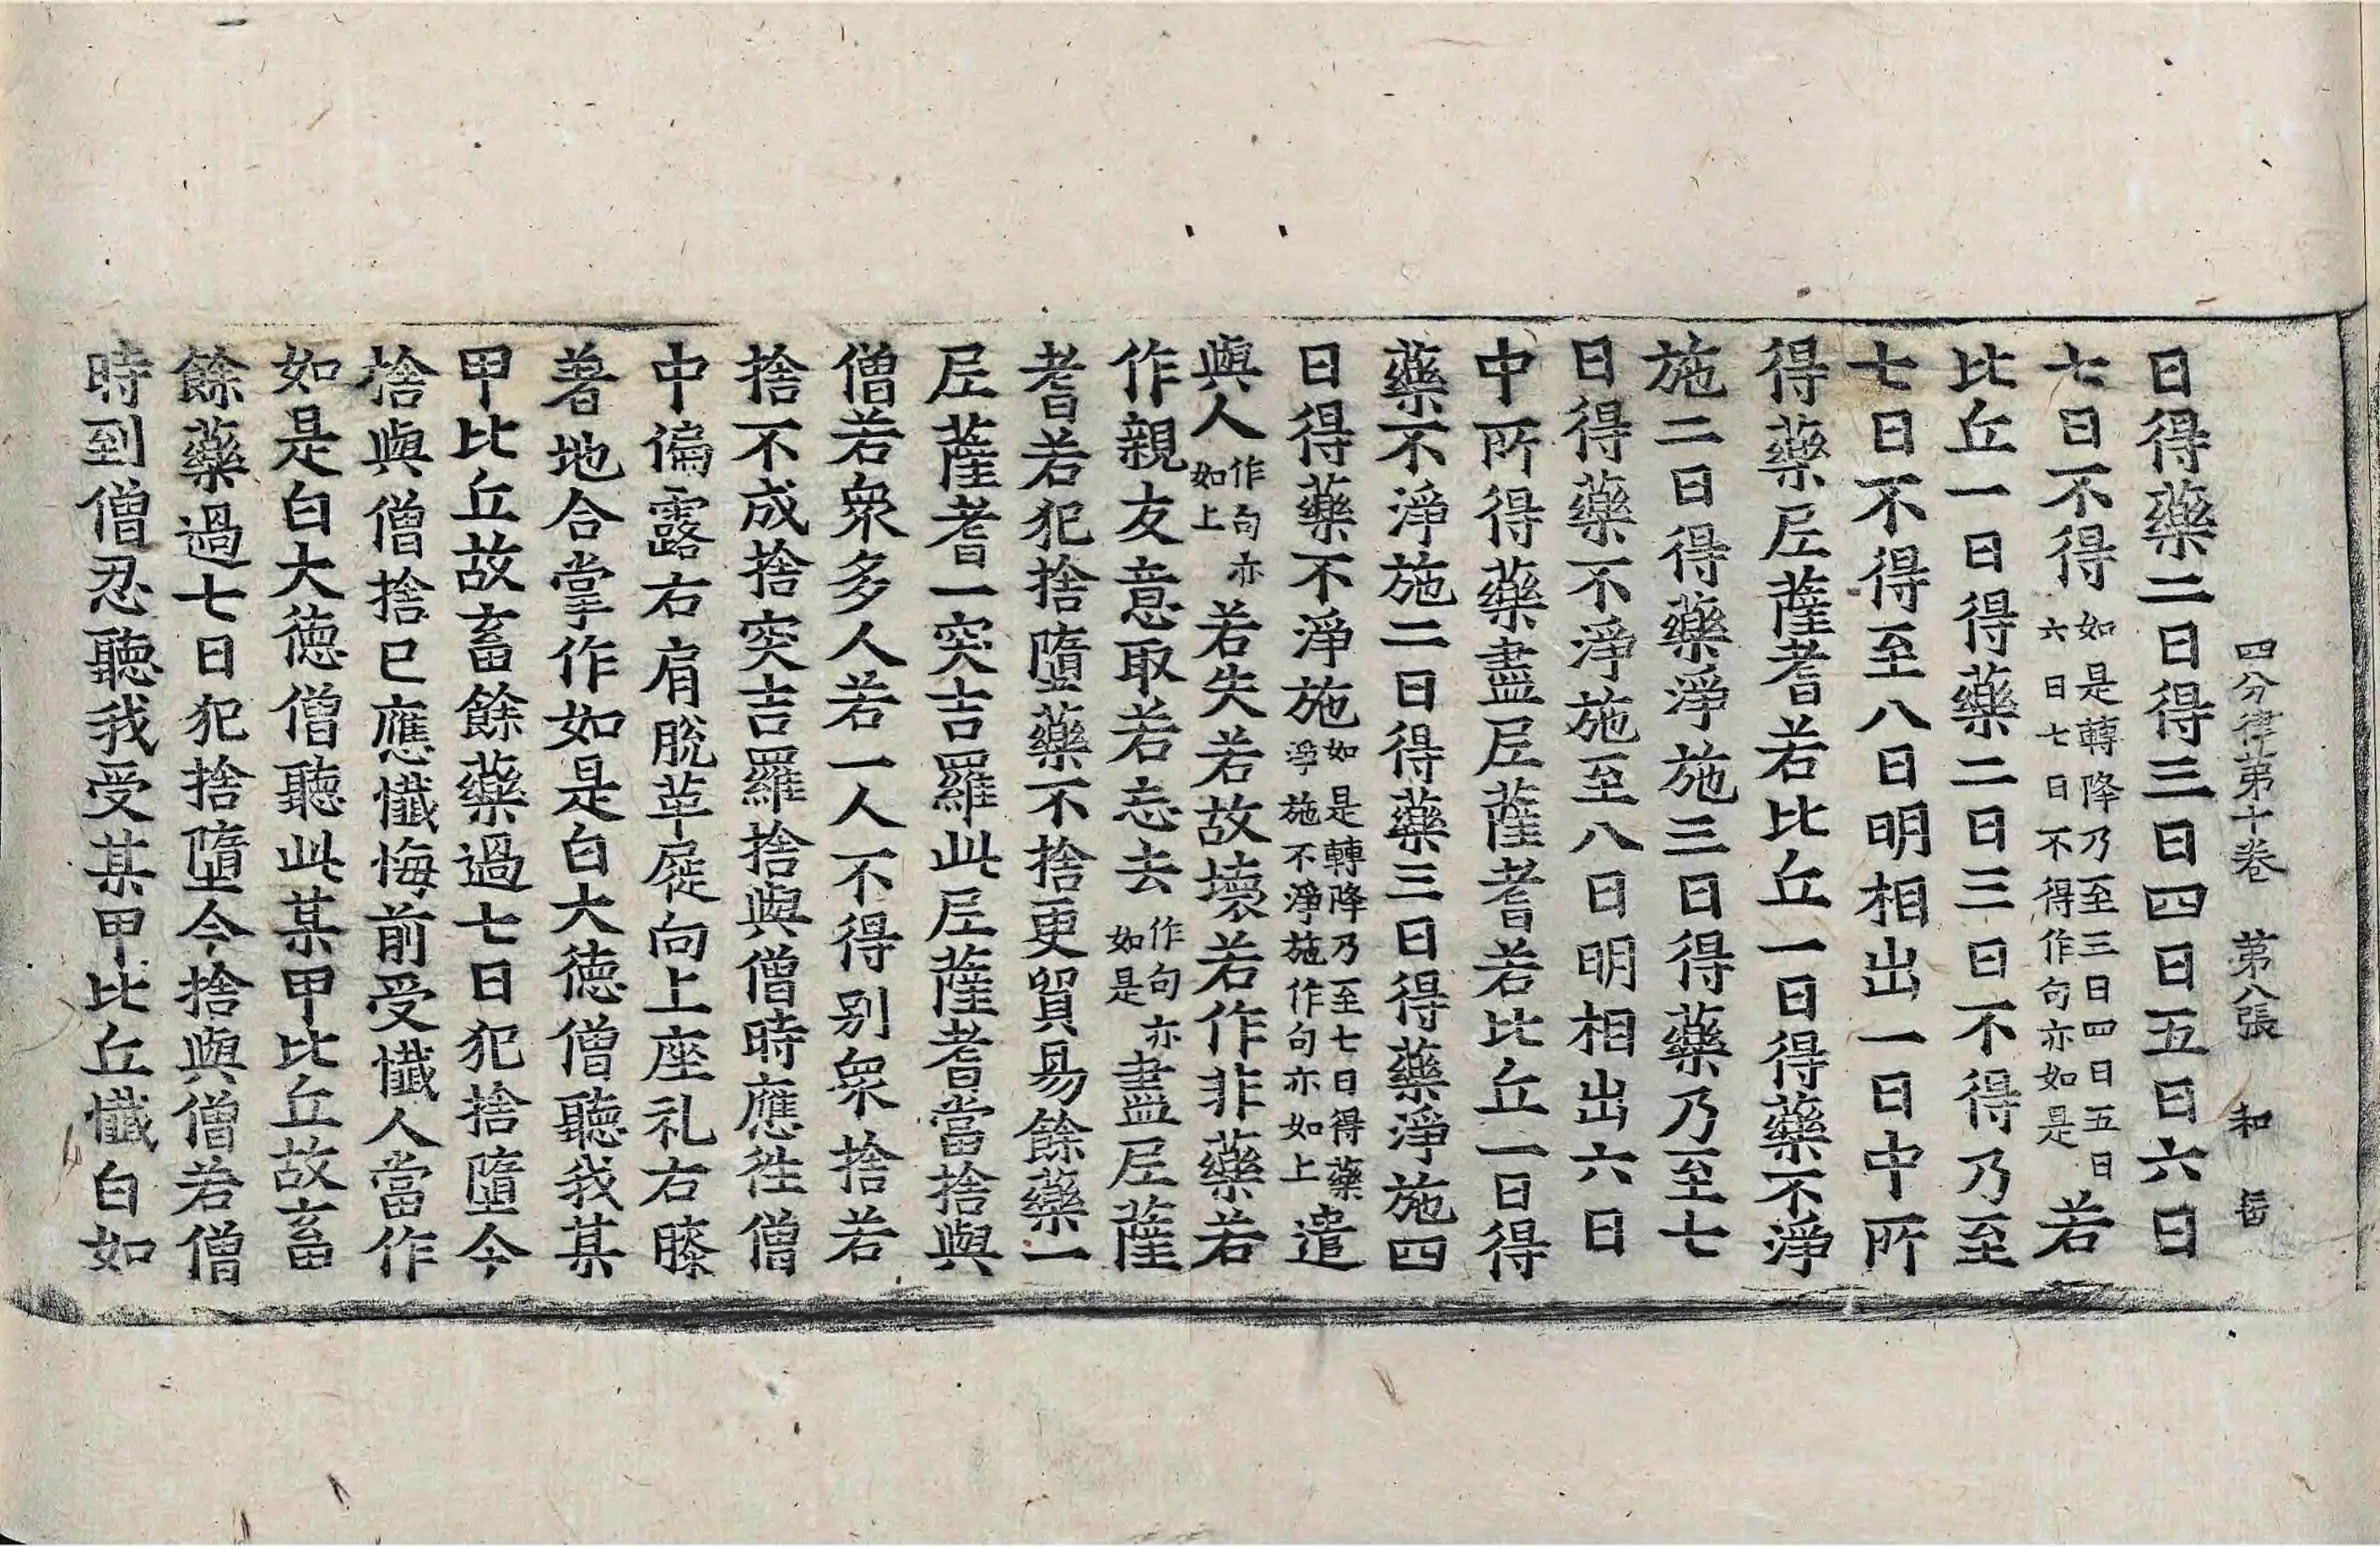 四分律第十卷 第八張 和
日得藥二日得三日四日五日六日
七日不得如是轉降乃至三日四日五日六日七日不得作句亦如是若
比丘一日得藥二日三日不得乃至
七日不得至八日明相出一日中所
得藥尼薩耆若比丘一日得藥不淨
施二日得藥淨施三日得藥乃至七
日得藥不淨施至八日明相出六日
中所得藥盡尼薩耆若比丘一日得
藥不淨施二日得藥三日得藥淨施四
日得藥不淨施如是轉降乃至七日得藥淨施不淨施作句亦如上遣
與人作句亦如上若失若故壞若作非藥若
作親友意取若忘去作句亦如是盡尼薩
耆若犯捨墮藥不捨更貿易餘藥一
尼薩耆一突吉羅此尼薩耆當捨與
僧若衆多人若一人不得別衆捨若
捨不成捨突吉羅捨與僧時應徃僧
中偏露右肩脫革屣向上座礼右膝
著地合掌作如是白大德僧聽我某
甲比丘故畜餘藥過七日犯捨墮今
捨與僧捨已應懺悔前受懺人當作
如是白大德僧聽此某甲比丘故畜
餘藥過七日犯捨墮今捨與僧若僧
時到僧忍聽我受某甲比丘懺白如